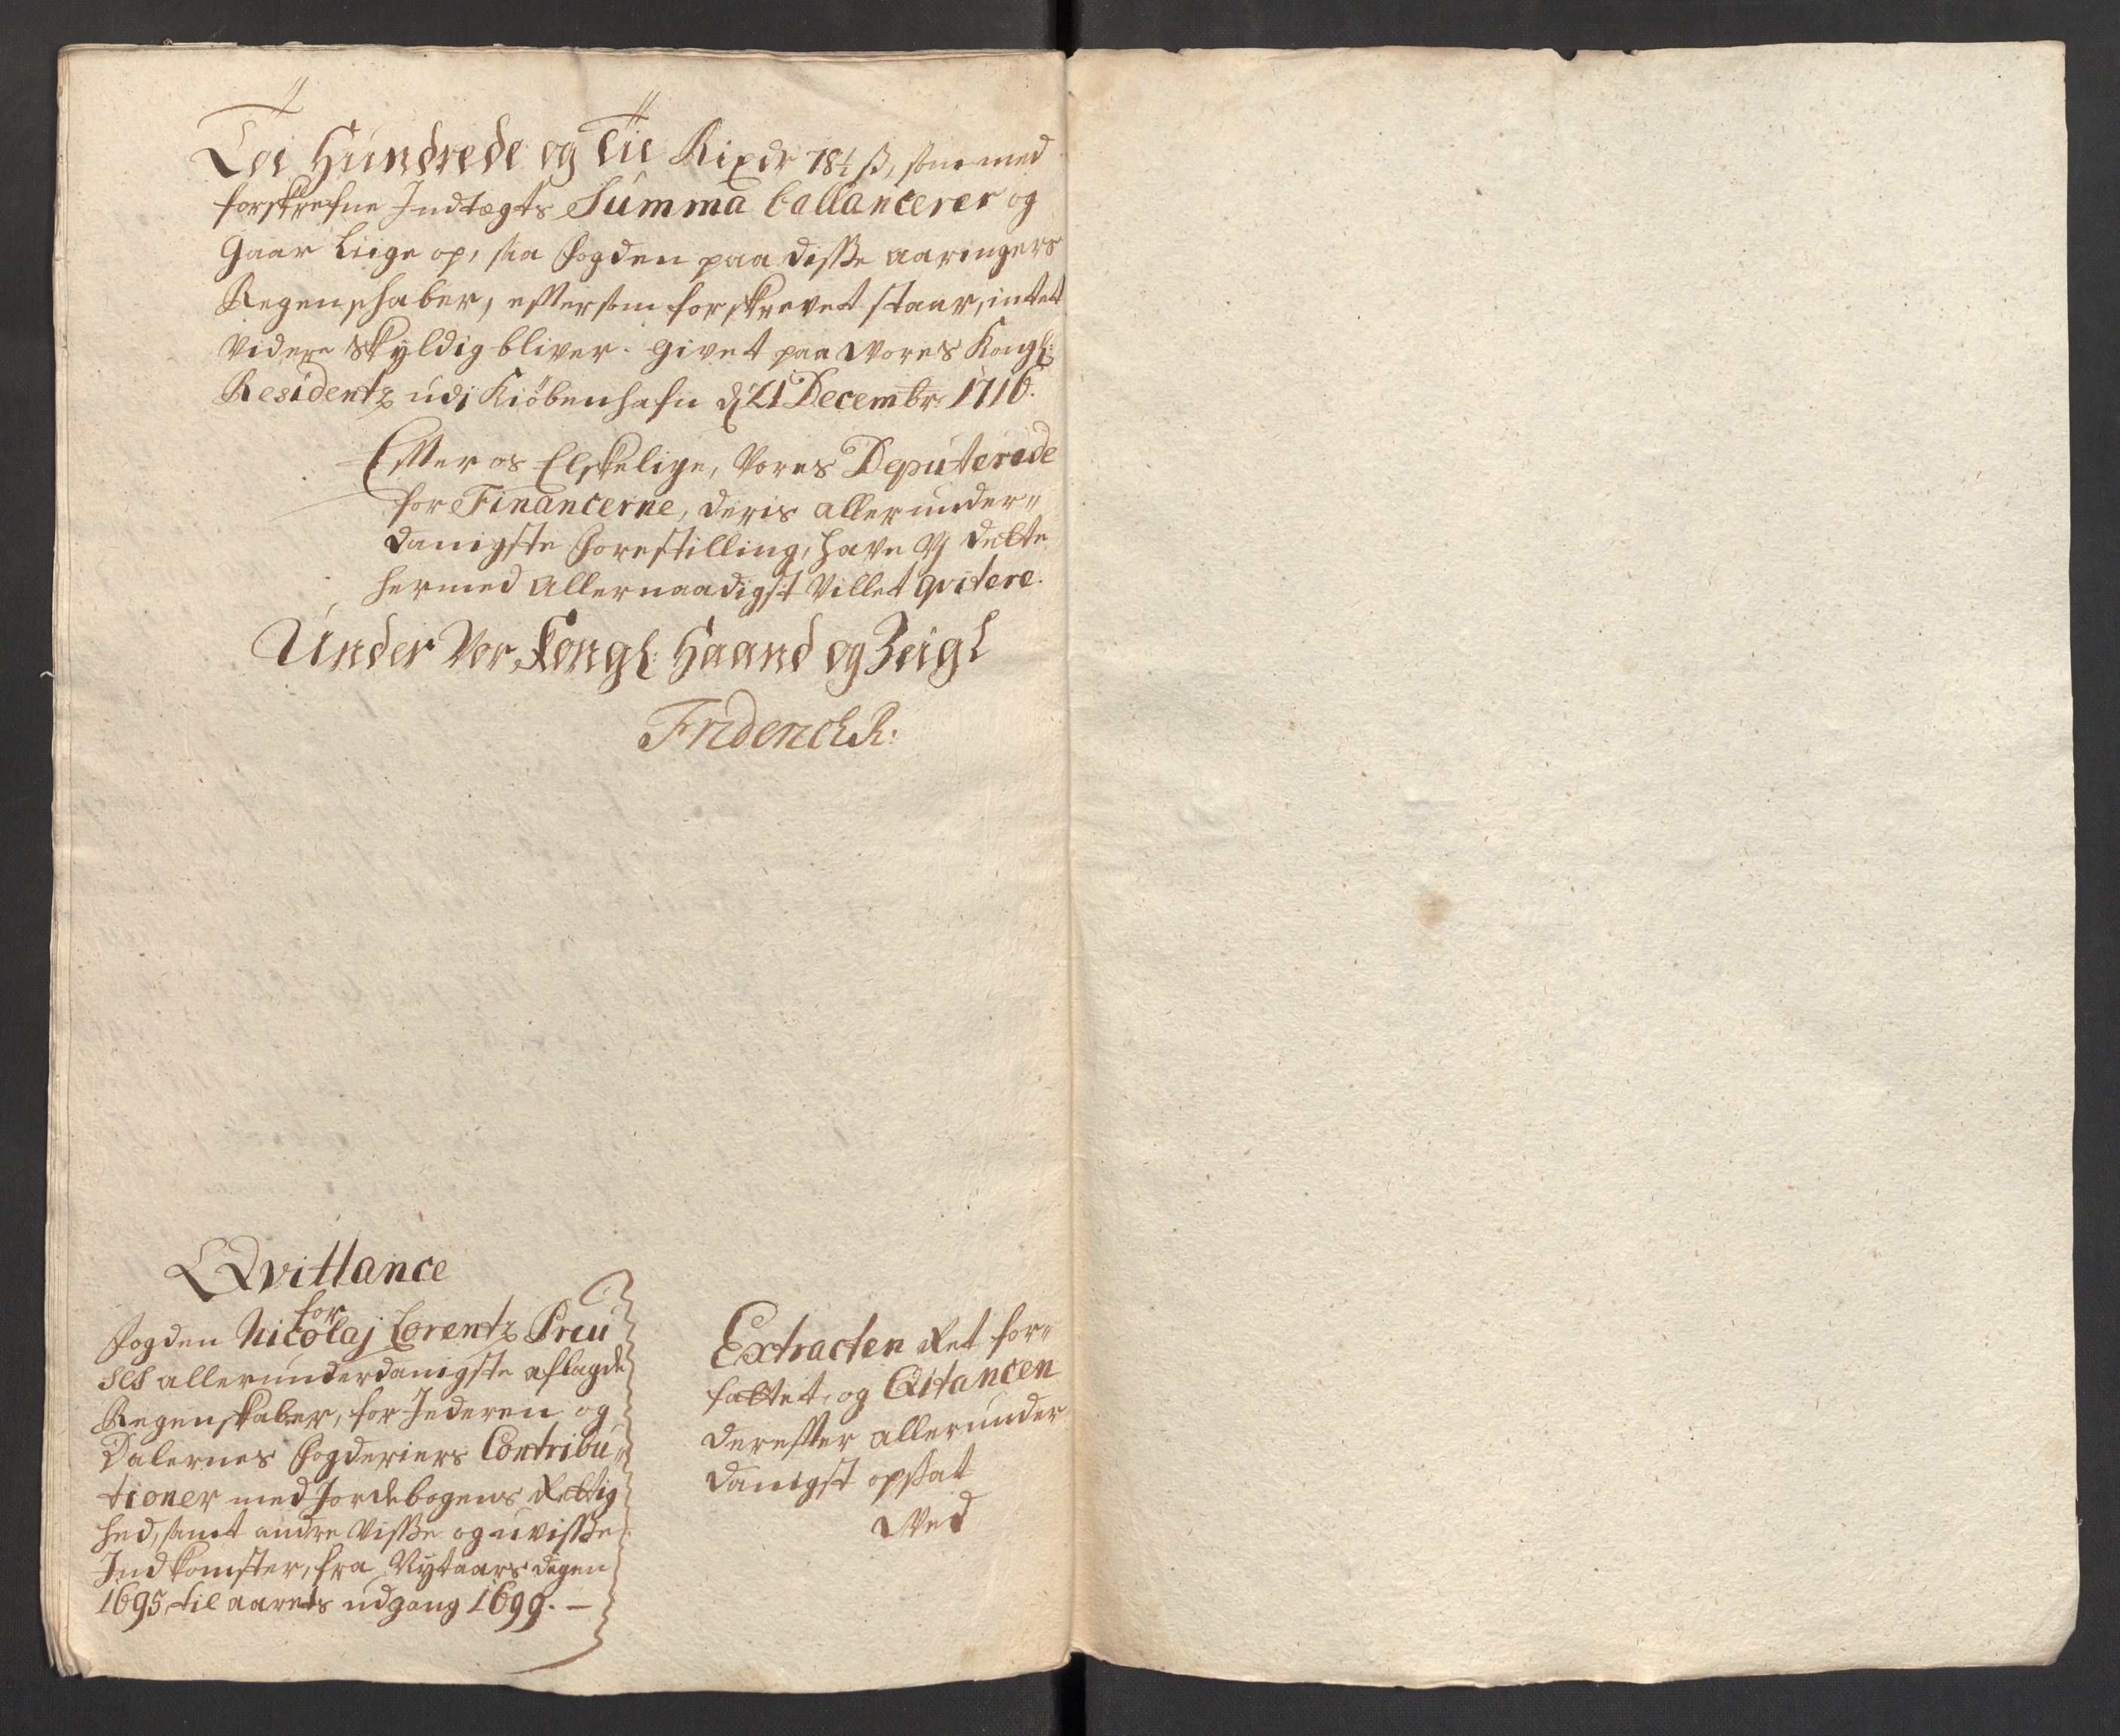 Toe Hundrede og Tie Rixdr 78½ ß, som med
forskrefne Indtægts Summa ballancerer og
gaar liige op, saa Fogden paa disse aaringers
Regenschaber, eftersom forskrevet staar, intet
videre skyldig bliver. Givet paa Vores Kongl:
Residentz udj Kiöbenhafn d 21 Decembr: 1716.
Efter os Elskelige, Vores Deputerede
for Financerne, deris allerunder„
danigste Forestilling, have Vj dette
hermed allernaadigst Villet qvitere.
Under Vor Kongl: Haand og Zeigl
Friderich R:
Qvittance
for
Fogden Nicolaj Lorentz Preu
ses allerunderdanigste aflagde
Regenskaber, for Jederen og
Dalernes Fogderiers Contribu„
tioner med Jordebogens Rettig
hed, samt andre Visse og uvisse
Indkomster, fra Nytaarsdagen
1695 til aarets udgang 1699. —
Extracten Ret for„
fattet, og Qitancen
derefter allerunder
danigst opsat
Ved